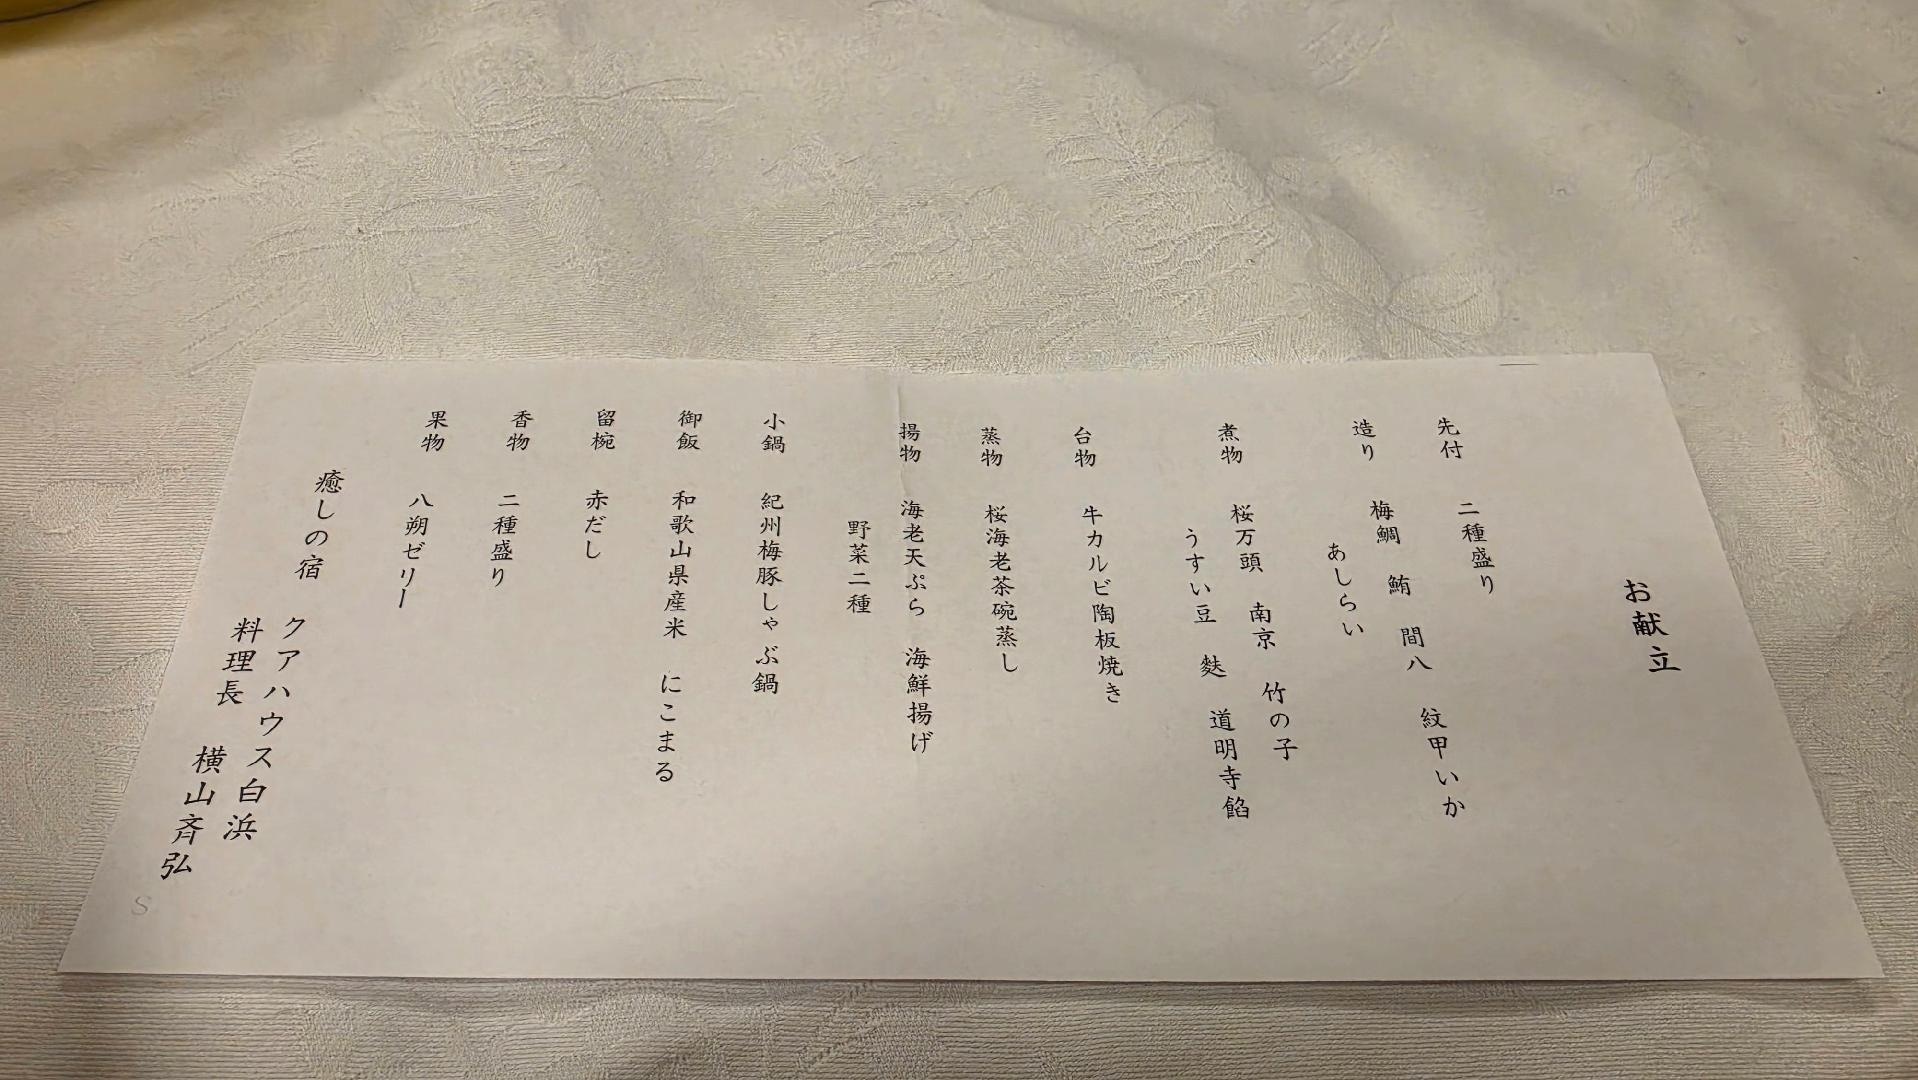 お献立
先付　二種盛り
造り　梅鯛　鮪　間八　紋甲いか
あしらい
煮物　桜万頭　南京　竹の子
うすい豆　麩　道明寺餡
台物　牛カルビ陶板焼き
蒸物　桜海老茶碗蒸し
揚物　海老天ぷら　海鮮揚げ
野菜二種
小鍋　紀州梅豚しゃぶ鍋
御飯　和歌山県産米　にこまる
留椀　赤だし
香物　二種盛り
果物　八朔ゼリー
癒しの宿　クアハウス白浜
料理長　横山斉弘
S